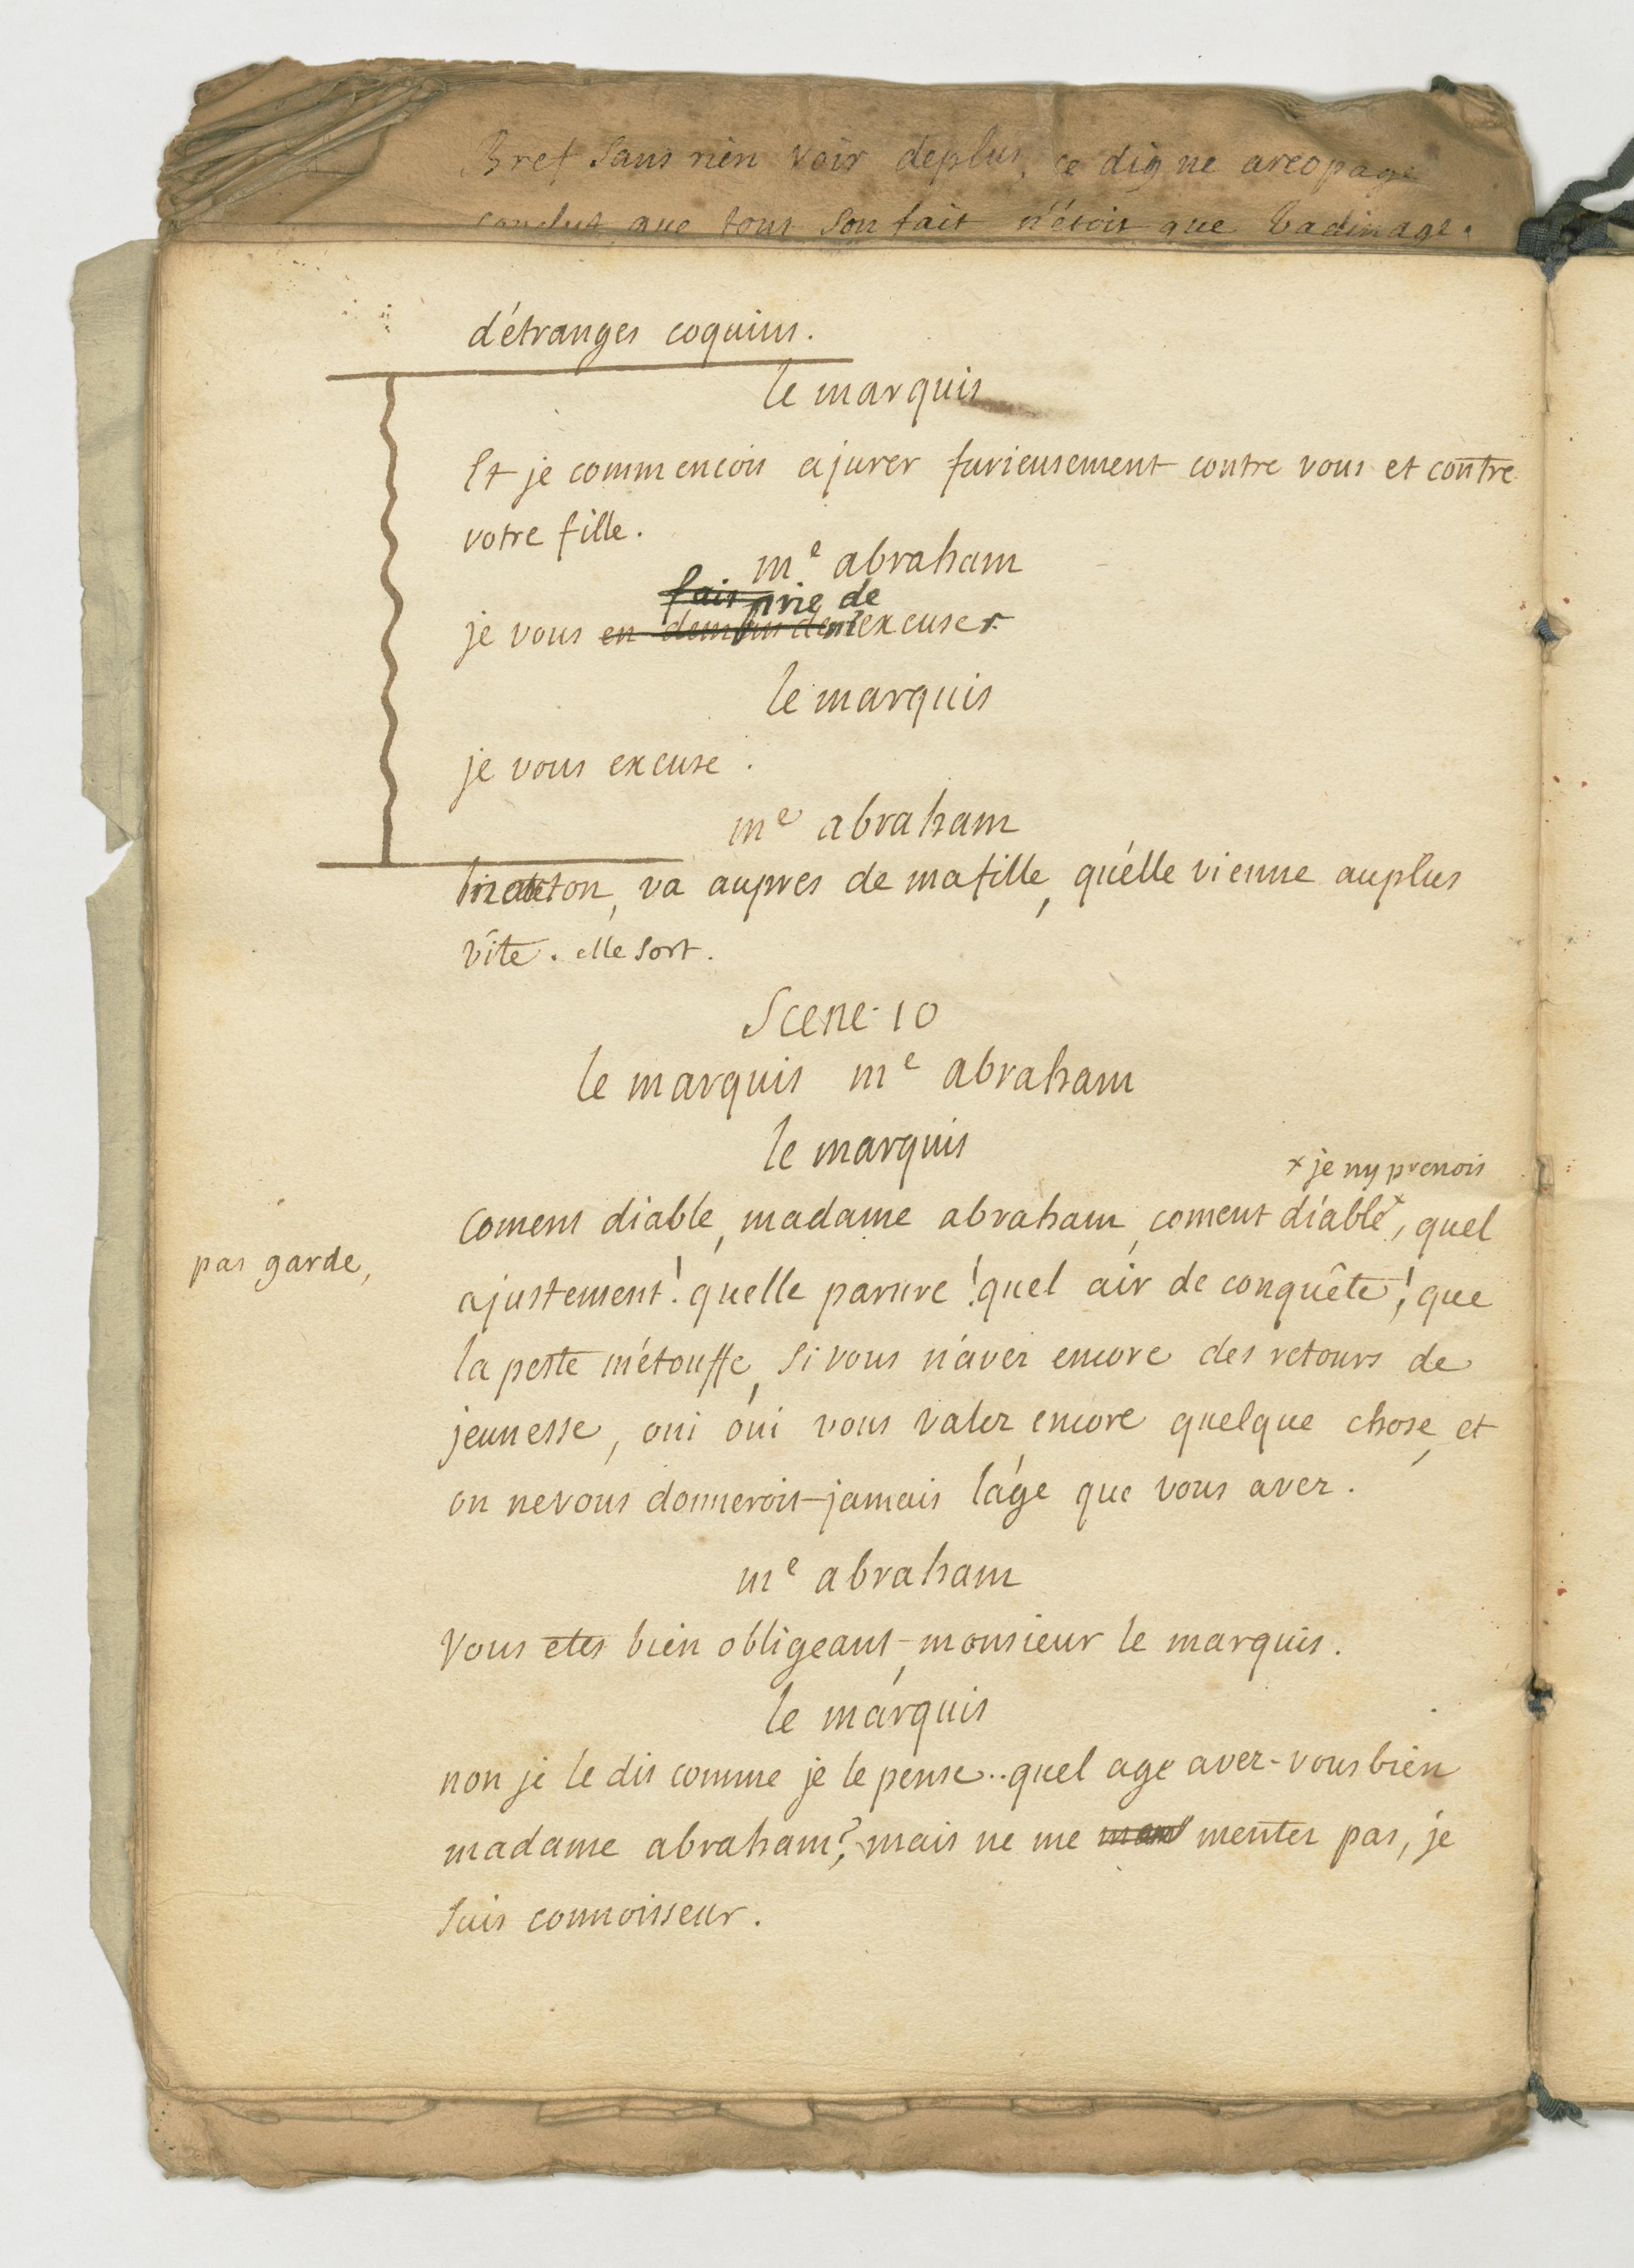 Bref sans rien voir deplus, ce digne areopage
conclut que tout son fait n'étoit que badinage.
d'étranges coquins.
le marquis
Et je commencois ajurer furieusement contre vous et contre
votre fille.
me abraham
fais prie de
je vous en demande m'excuser.
le marquis
je vous excuse.
me abraham
va aupres de mafille, qu'elle vienne auplus
vîte. elle sort.
Scene 10
le marquis me abraham
le marquis
x je ny prenois
coment diable, madame abraham, coment diable x, quel
pas garde,
ajustement! quelle parure! quel air de conquête!, que
la peste m'étouffe, si vous n'avez encore des retours de
jeunesse, oui oui vous valez encore quelque chose, et
on nevous donneroit jamais l'age que vous avez.
me abraham
Vous etes bien obligeant, monsieur le marquis.
le marquis
non je le dis comme je le pense.. quel age avez-vous bien
madame abraham?, mais ne me mentez pas, je
suis connoisseur.